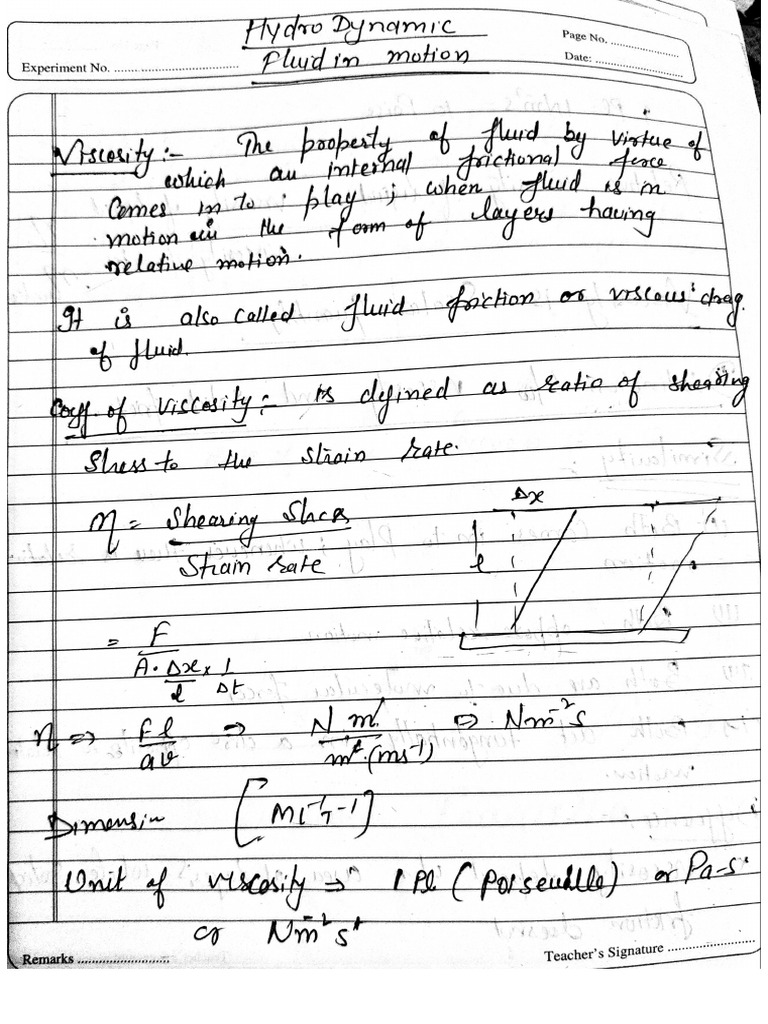 Hydro Dynamic
Fluid in motion
Page No. ....................
Experiment No. ....................
Date: ....................
Viscosity :- The property of fluid by virtue of
which an internal frictional force
Comes in to play ; when fluid is in
motion in the form of layers having
relative motion.
It is also called fluid friction or viscous drag.
of fluid.
Coff. of Viscosity :- Is defined as ratio of shearing
Stress to the strain rate.
Δx
η = Shearing Stress
Strain rate
l
= F
A . Δx x 1
l Δt
η => Fl => N m => Nm⁻²s
av m² (ms⁻¹)
Dimensi- [ML⁻¹T⁻¹]
Unit of viscosity => 1 Pl (Poiseuille) or Pa-s
or Nm⁻²s
Remarks ....................
Teacher's Signature ....................